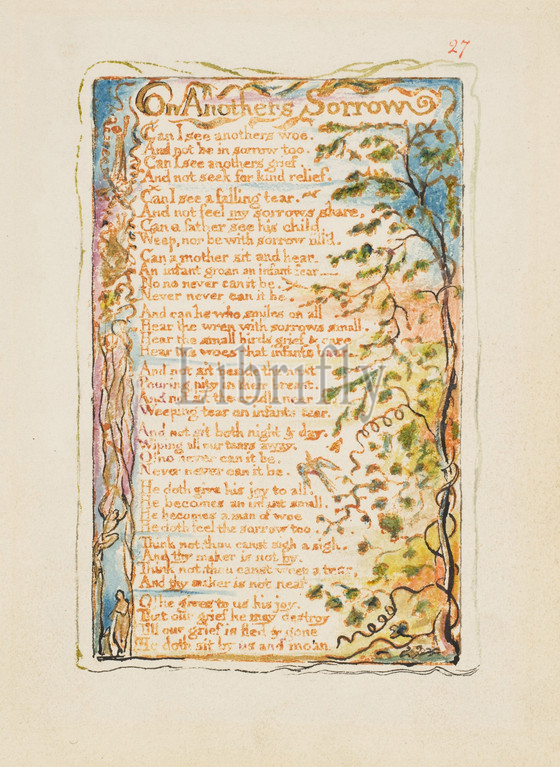 27
On Anothers Sorrow
Can I see anothers woe.
And not be in sorrow too.
Can I see anothers grief.
And not seek for kind relief.
Can I see a falling tear.
And not feel my sorrows share,
Can a father see his child,
Weep, nor be with sorrow fill'd.
Can a mother sit and hear.
An infant groan an infant fear
No no never can it be.
Never never can it be.
And can he who smiles on all
Hear the wren with sorrows small.
Hear the small birds grief & care
Hear the woes that infants bear
And not sit beside the nest
Pouring pity in their breast.
And not sit the cradle near
Weeping tear on infants tear.
And not sit both night & day.
Wiping all our tears away.
O! no never can it be.
Never never can it be.
He doth give his joy to all.
He becomes an infant small.
He becomes a man of woe
He doth feel the sorrow too.
Think not, thou canst sigh a sigh.
And thy maker is not by.
Think not, thou canst weep a tear.
And thy maker is not near.
O! he gives to us his joy.
That our grief he may destroy
Till our grief is fled & gone
He doth sit by us and moan
Librifly